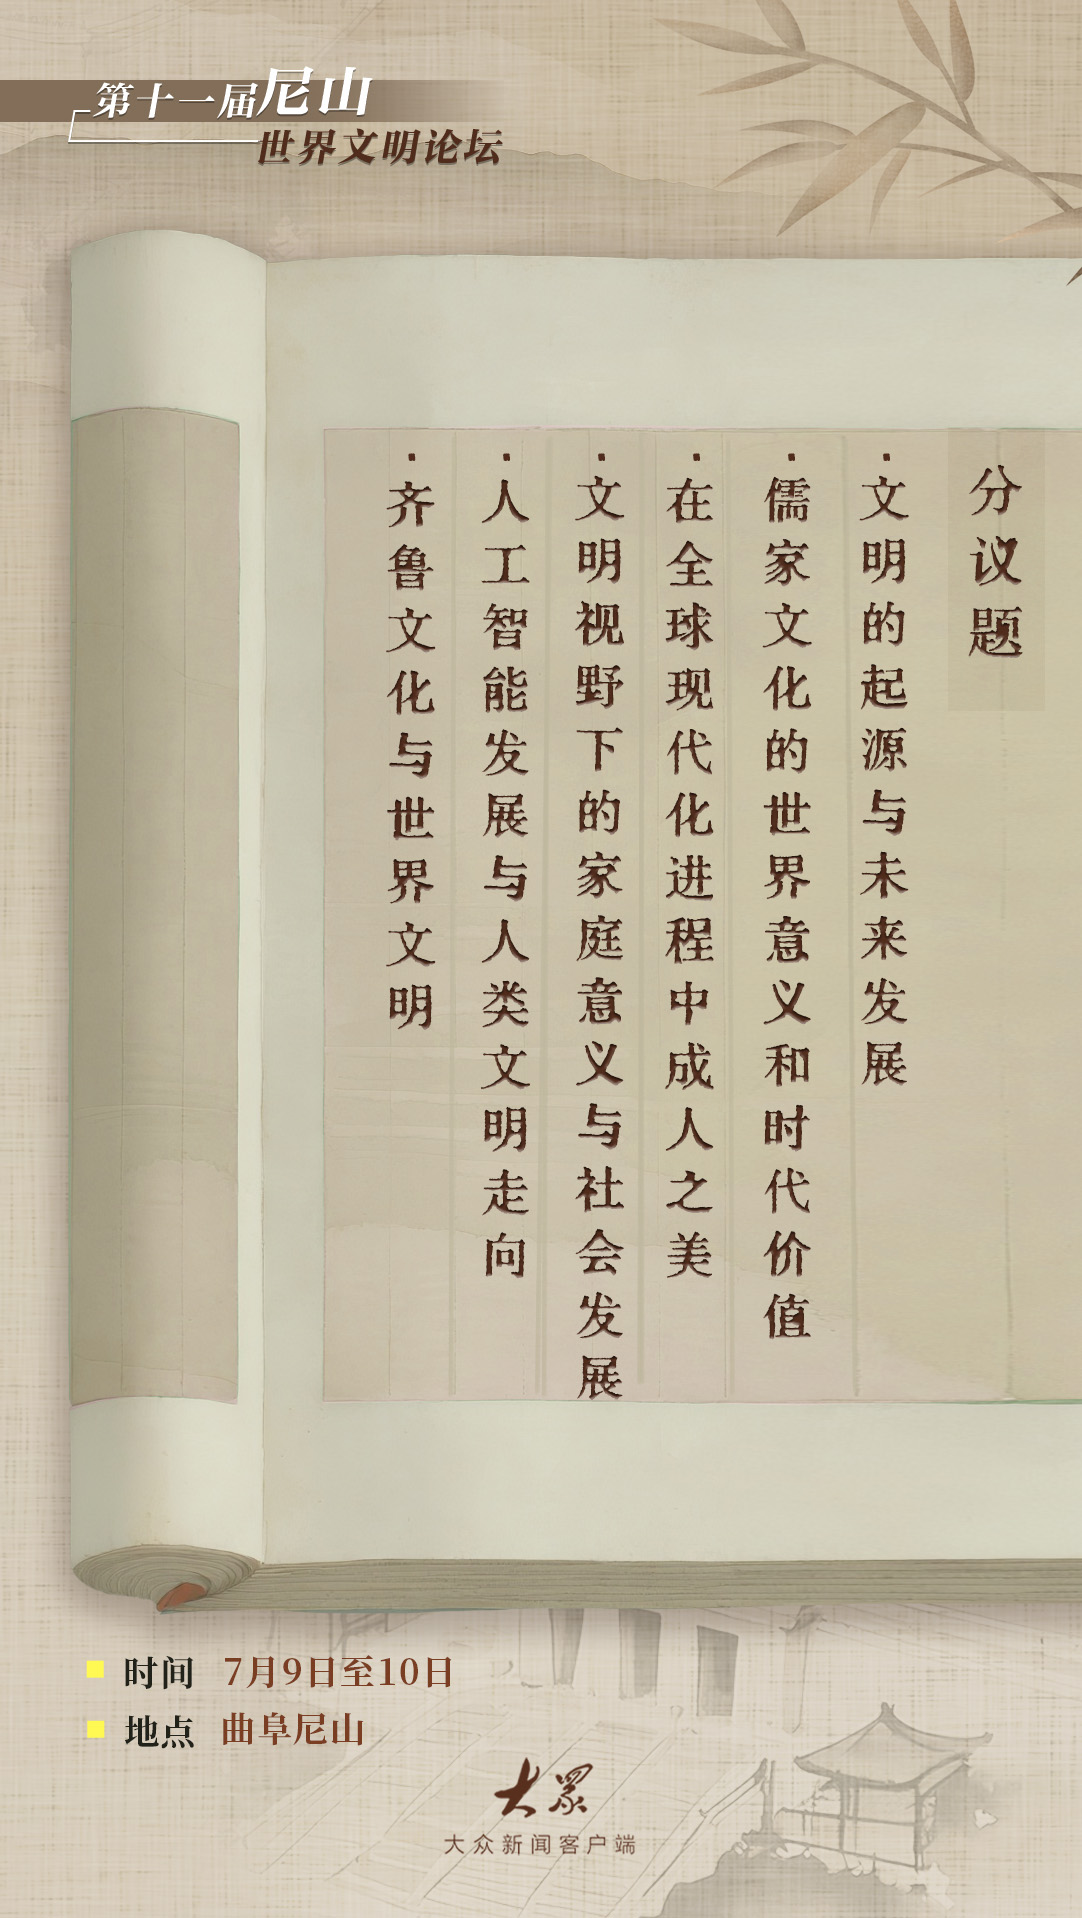 第十一届尼山
世界文明论坛
分议题
·文明的起源与未来发展
·儒家文化的世界意义和时代价值
·在全球现代化进程中成人之美
·文明视野下的家庭意义与社会发展
·人工智能发展与人类文明走向
·齐鲁文化与世界文明
时间 7月9日至10日
地点 曲阜尼山
大众
大众新闻客户端